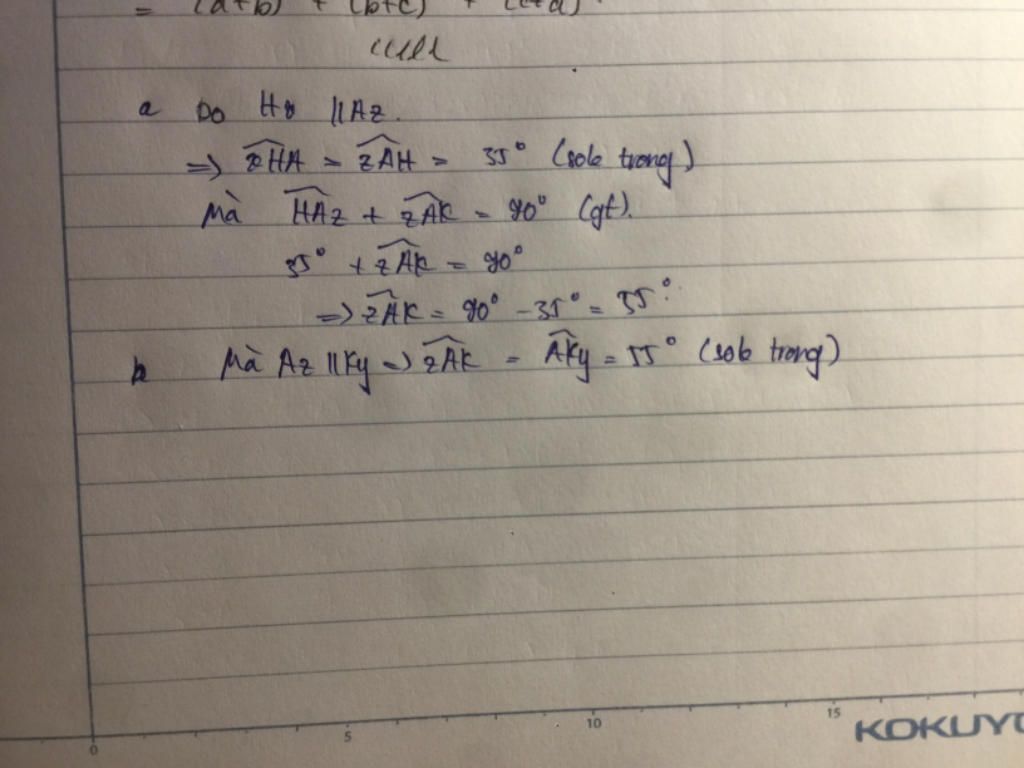 = (a+b) + (b+c) + (c+a)
a Do Hx // Az.
=> xHA = zAH = 35° (sole trong)
Mà HAz + zAK = 90° (gt).
35° + zAK = 90°
=> zAK = 90° - 35° = 55°.
b Mà Az // Ky => zAK = AKy = 55° (sole trong)
0 5 10 15
KOKUYO